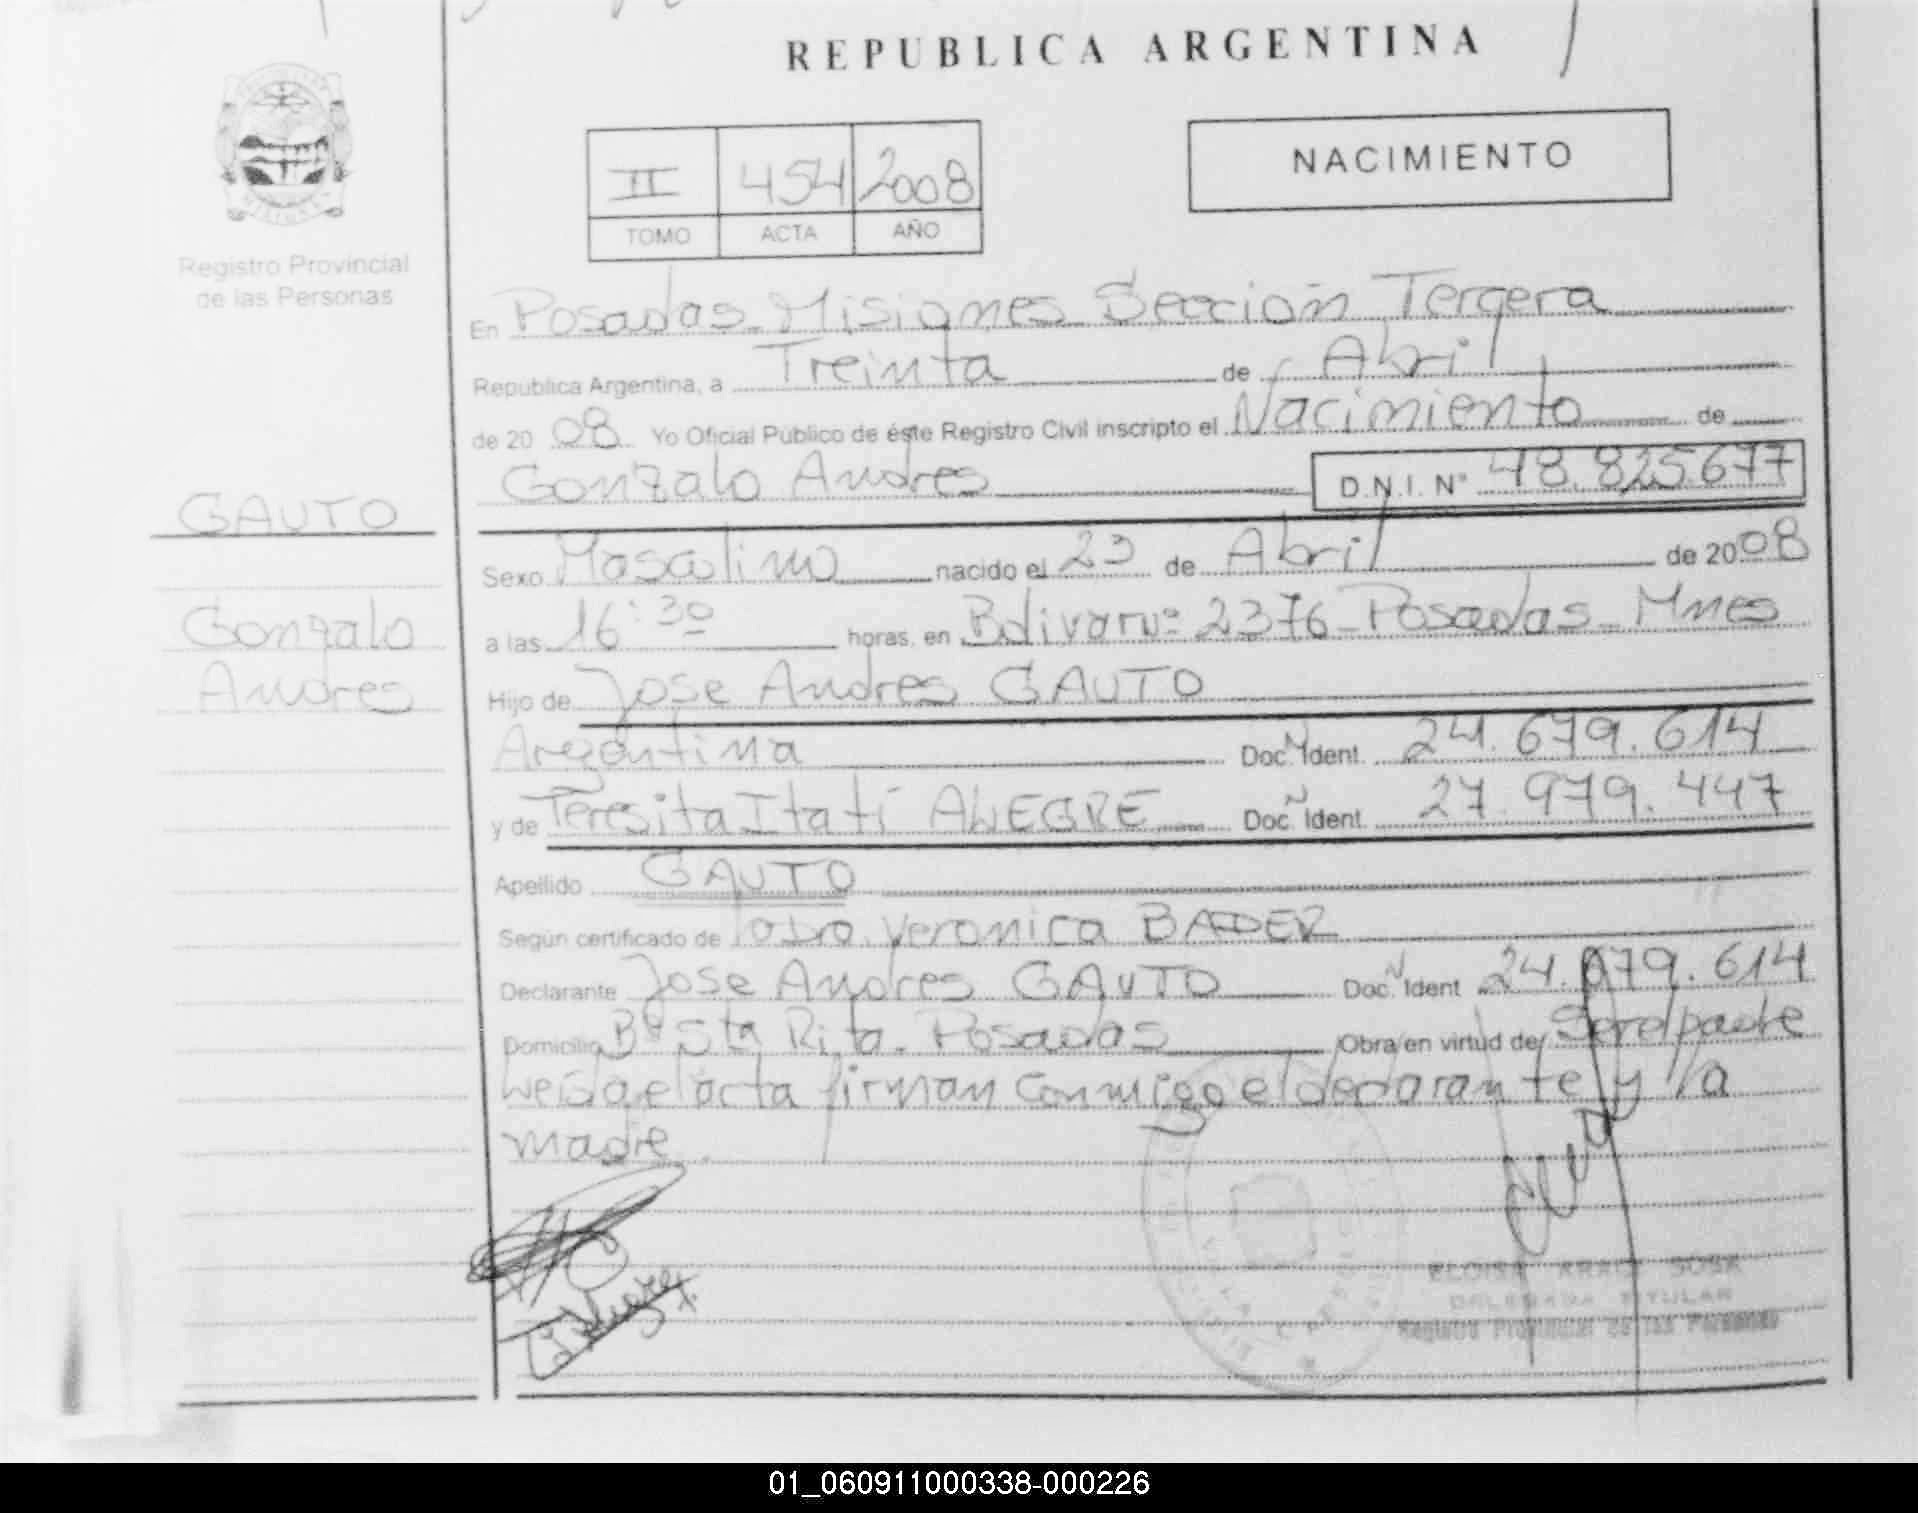 REPUBLICA ARGENTINA
NACIMIENTO
II 454 2008
TOMO ACTA AÑO
Registro Provincial
de las Personas
En Posadas - Misiones Sección Tercera
Republica Argentina, a Treinta de Abril
de 2008 Yo Oficial Público de éste Registro Civil inscripto el Nacimiento de
Gonzalo Andres D.N.I. N° 48.825.677
GAUTO
Gonzalo
Andres
Sexo Masculino nacido el 23 de Abril de 2008
a las 16:30 horas, en Bolivar Nº 2376 - Posadas - Mnes
Hijo de Jose Andres GAUTO
Argentina Doc. N Ident. 24.679.614
y de Teresita Itatí ALEGRE Doc. N Ident. 27.979.447
Apellido GAUTO
Según certificado de Veronica BADER
Declarante Jose Andres GAUTO Doc. N Ident 24.679.614
Domicilio Bº Sta Rita - Posadas Obra en virtud de Ser el padre
Leida el acta firman conmigo el declarante y la
madre.
ELOISA SOSA
DELEGADA TITULAR
Registro Provincial de las Personas
01_060911000338-000226